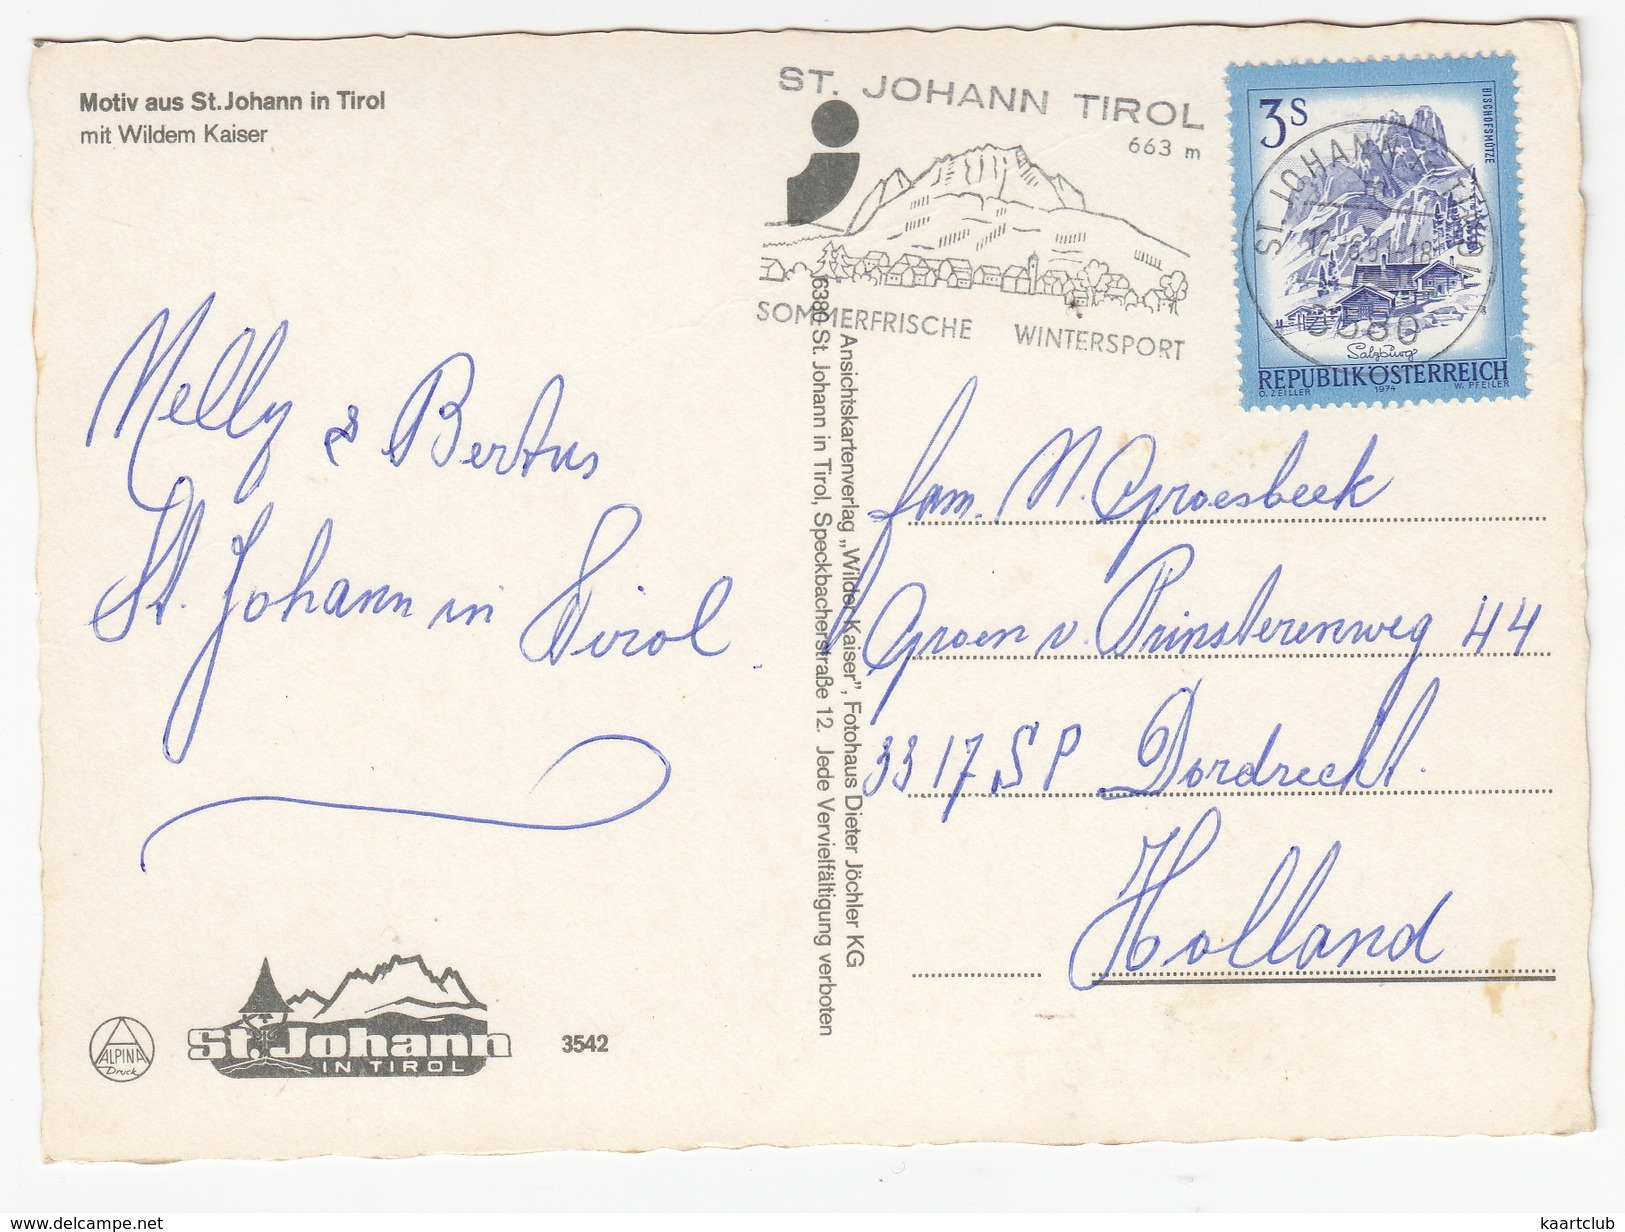 Motiv aus St. Johann in Tirol
mit Wildem Kaiser
ST. JOHANN TIROL
663 m
SOMMERFRISCHE WINTERSPORT
3S
BISCHOFSMÜTZE
ST. JOHANN TIROL
12.-6.81-18
6380
Salzburg
REPUBLIK ÖSTERREICH
O. ZEILLER 1974 W. PFEILER
Nelly & Bertus
St. Johann in Tirol.
Ansichtskartenverlag „Wilder Kaiser", Fotohaus Dieter Jöchler KG
6380 St. Johann in Tirol, Speckbacherstraße 12. Jede Vervielfältigung verboten
fam. N. Groesbeek
Groen v. Prinstererweg 44
3317 SP Dordrecht.
Holland
ALPINA
Druck
St. Johann
IN TIROL
3542
www.delcampe.net
kaartclub